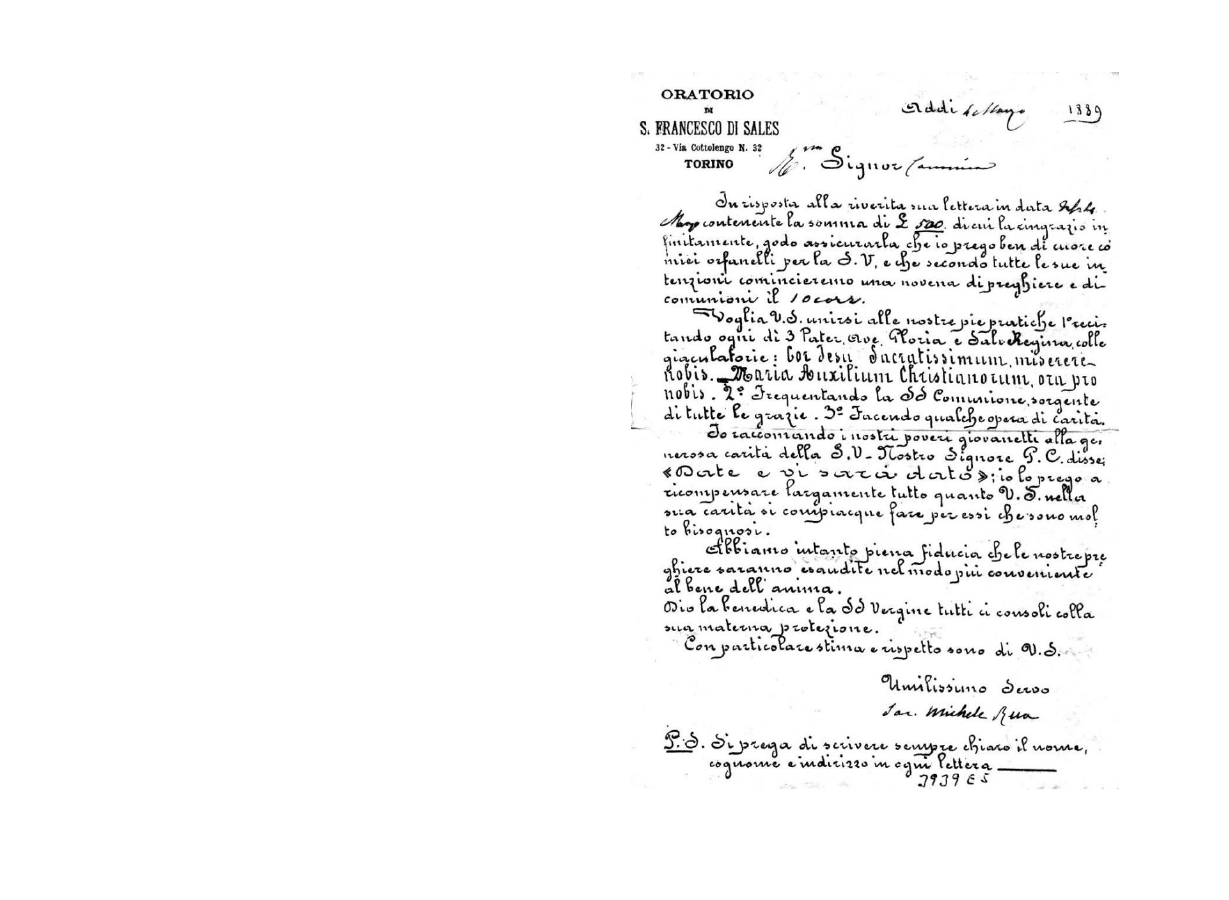 ORATORIO
DI
S. FRANCESCO DI SALES
32 - Via Cottolengo N. 32
TORINO
Addì 1889
Signor
In risposta alla riverita sua lettera in data
contenente la somma di £ 500. di cui la ringrazio in
finitamente, godo assicurarla che io prego ben di cuore co'
miei orfanelli per la S.V, e che secondo tutte le sue in
tenzioni comincieremo una novena di preghiere e di
comunioni il 10 corr.
Voglia V.S. unirsi alle nostre pie pratiche 1º reci-
tando ogni dì 3 Pater, Ave, Gloria e Salve Regina, colle
giaculatorie: Cor Jesu Sacratissimum, miserere
nobis. _Maria Auxilium Christianorum, ora pro
nobis. 2º Frequentando la SS Comunione, sorgente
di tutte le grazie. 3º Facendo qualche opera di carità.
Io raccomando i nostri poveri giovanetti alla ge,
nerosa carità della S.V- Nostro Signore G.C. disse;
«Date e vi sarà dato»; io lo prego a
ricompensare largamente tutto quanto V.S. nella
sua carità si compiacque fare per essi che sono mol
to bisognosi.
Abbiamo intanto piena fiducia che le nostre pre
ghiere saranno esaudite nel modo più conveniente
al bene dell'anima.
Dio la benedica e la SS Vergine tutti ci consoli colla
sua materna protezione.
Con particolare stima e rispetto sono di V.S.
Umilissimo Servo
Sac. Michele Rua
P.S. Si prega di scrivere sempre chiaro il nome,
cognome e indirizzo in ogni lettera
3939 E 5